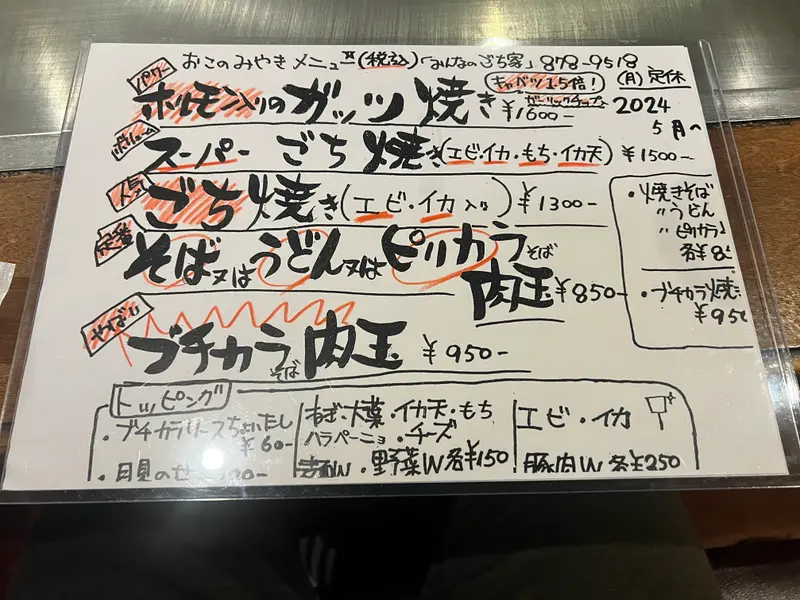 おこのみやきメニュー(税込)「みんなのごち家」878-9518
(月)定休
2024
5月〜
パワー
キャベツ1.5倍!
ホルモン入りのガッツ焼き ¥1600-
ガーリックチップ入
ボリューム
スーパーごち焼き(エビ・イカ・もち・イカ天) ¥1500-
人気
ごち焼き(エビ・イカ入り) ¥1300-
定番
そば又はうどん又はピリカラそば
肉玉 ¥850-
やばい
ブチカラそば肉玉 ¥950-
・焼きそば
〃うどん
〃ピリカラ
各¥8
・ブチカラ焼
¥950
トッピング
・ブチカラソースちょいたし
¥60-
・月見のせ
ねぎ・大葉・イカ天・もち
ハラペーニョ・チーズ
W・野菜W 各¥150
エビ・イカ
豚肉W 各¥250